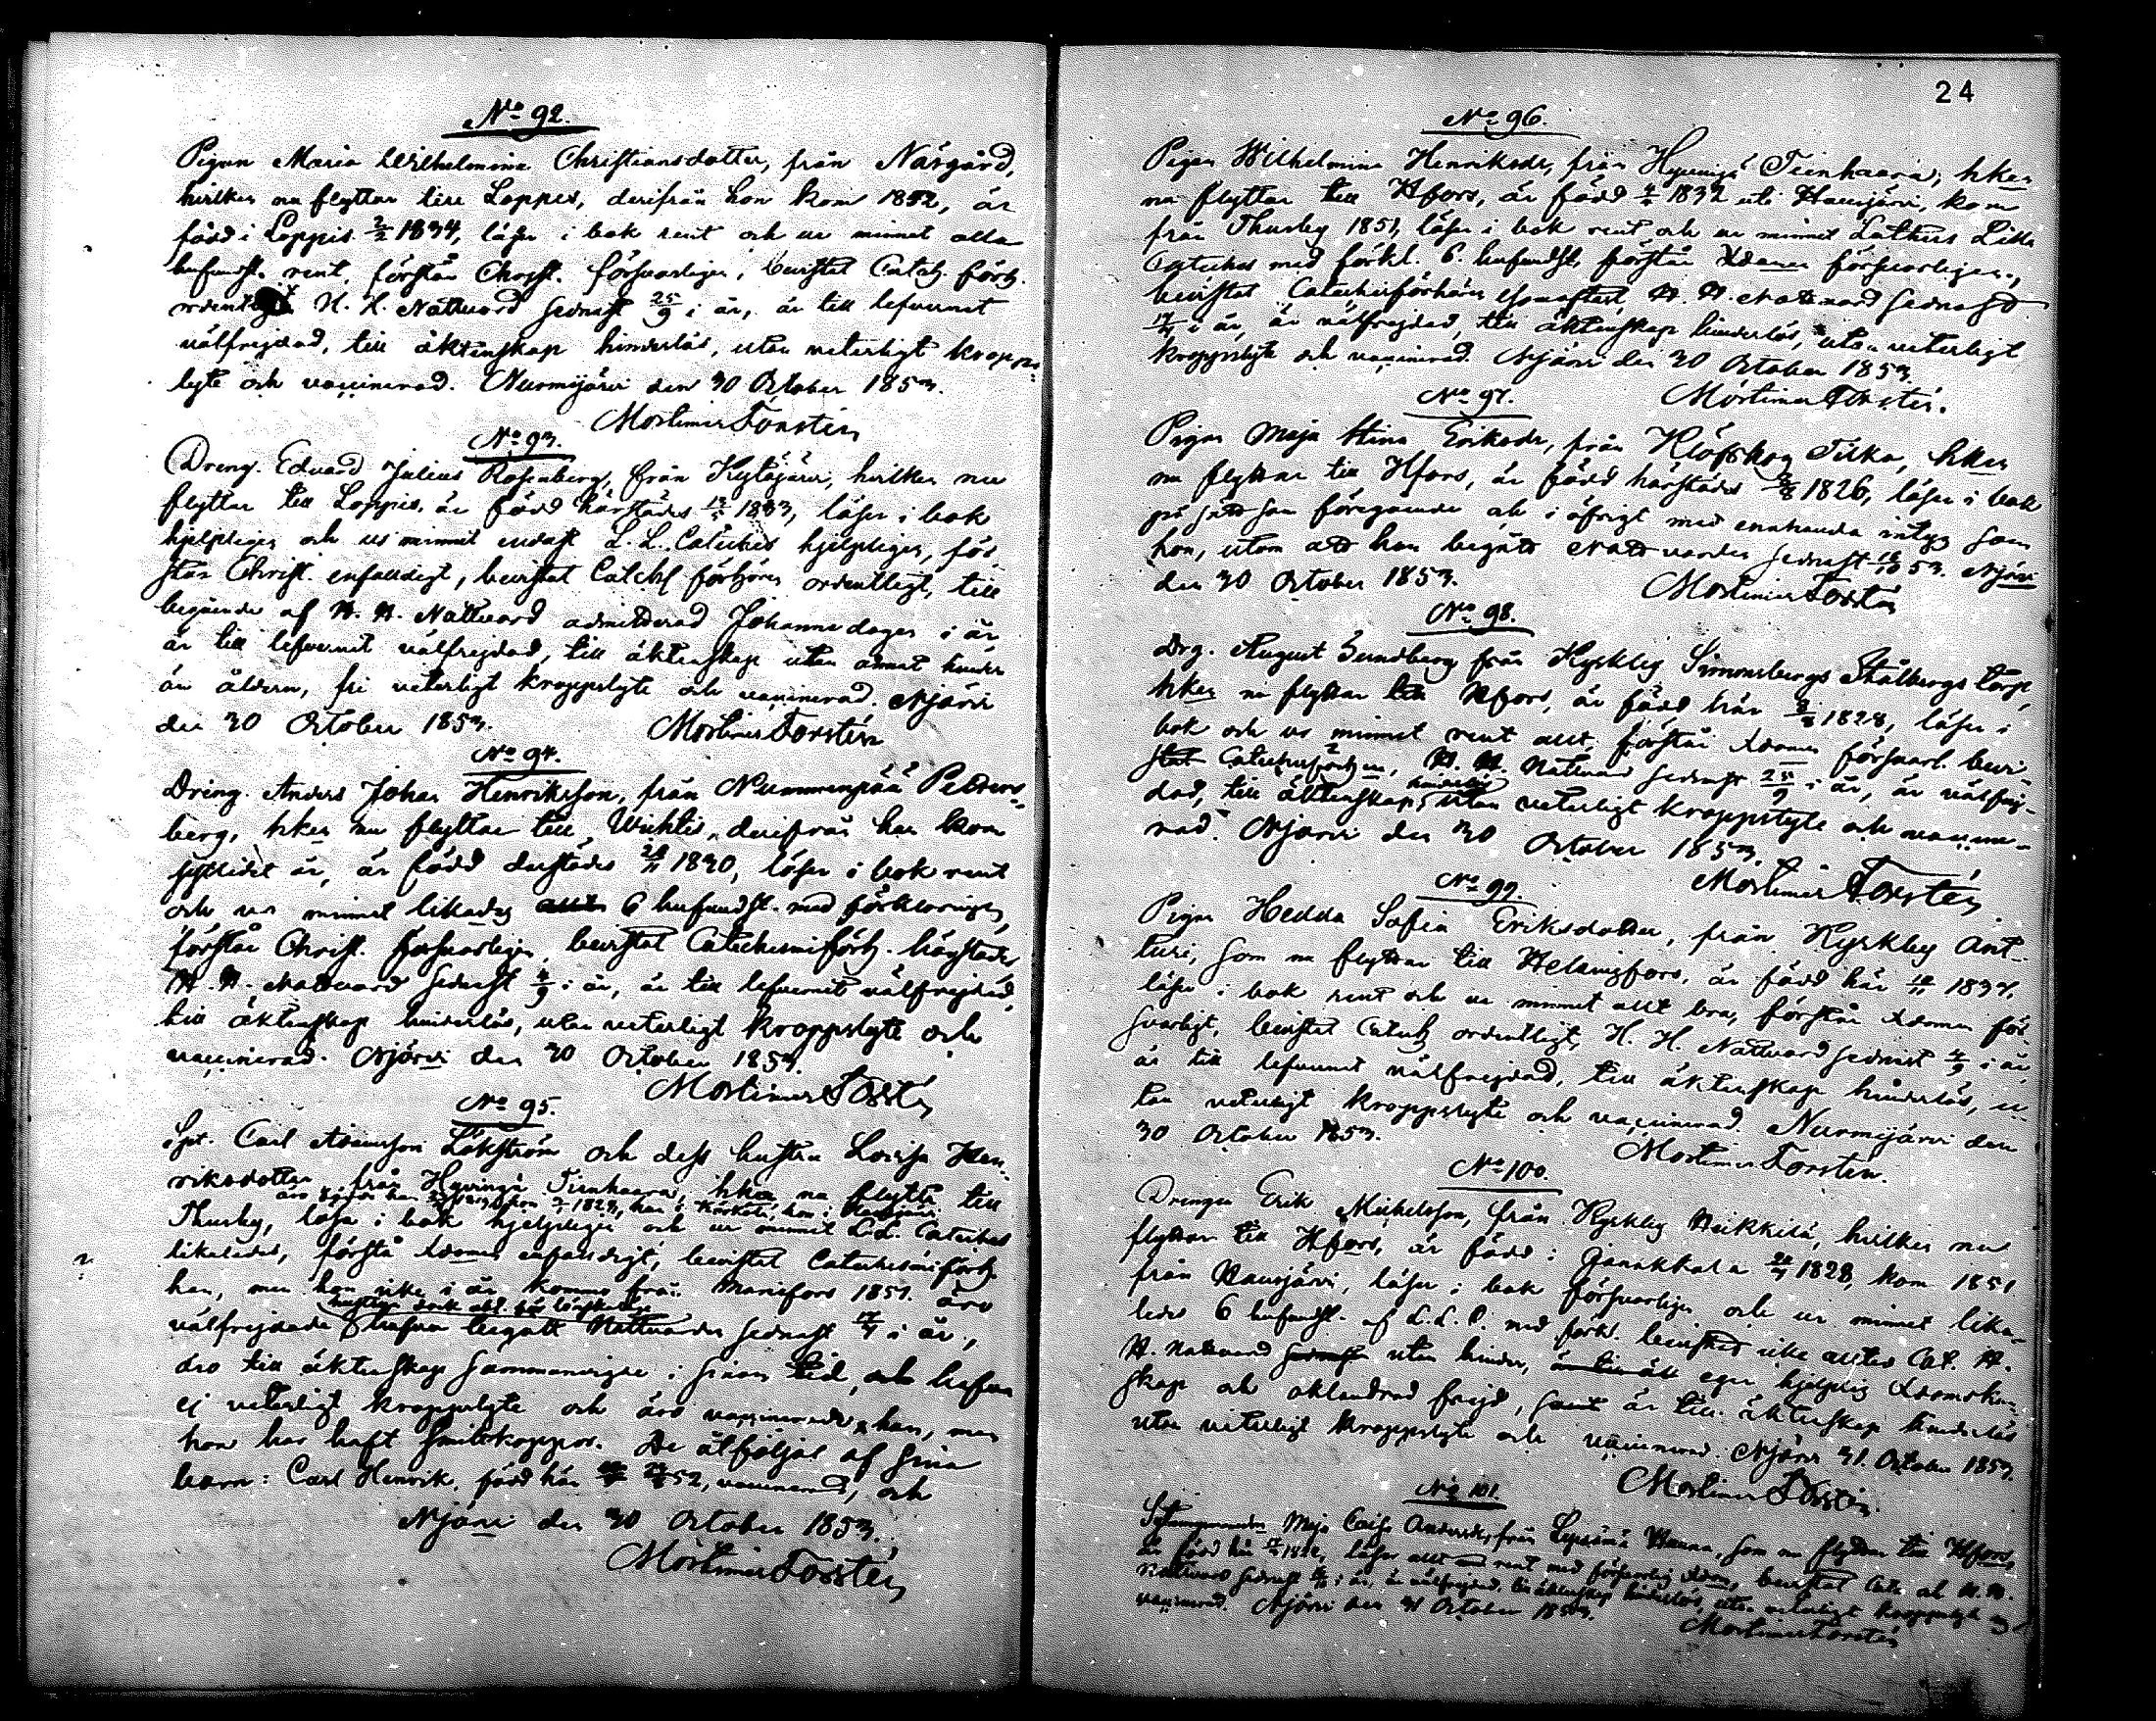 No 92.
Pigan Maria Wilhelmina Christiansdotter, från Närgård,
hvilken nu flyttar till Loppis, derifrån hon kom 1852, är
född i Loppis 1834, läser i bok rent och ur minnet alla
hufvudst. rent, förstår Christ. försvarligen, bevistat Catech. förh.
H. H. Nattvard sednast 25/9 i år, är till lefvernet
välfrejdad, till äktenskap hinderlös, utan veterligt kropps-
lyte och vaccinerad. Nurmijärvi den 30 October 1853.
Mortimer Forstén
No 93.
Dreng. Edvard Julius Rosenberg, från Kytäjärvi, hvilken nu
flyttar till Loppis, är född härstädes 1833, läser i bok
hjelpligen och ur minnet endast L. L. Cateches hjelpligen, för-
står Christ. enfaldigt, bevistat Catech förhören ordentligt, till
begående af H. H. Nattvard admitterad Johanne dagen i år
är till lefvernet välfrejdad, till äktenskap utan annat hinder
än åldern, fri veterligt kroppslyte och vaccinerad. Njärvi
den 30 October 1853.
Mortimer Forstén
No 94.
Dreng. Anders Johan Henriksson, från Nummenpää Peders-
berg, hken nu flyttar till Wichtis, derifrån han kom
sistlidet år, är född derstädes 1830, läser i bok rent
och ur minnet likaledes 6 hufvudst. med förklaringen,
förstår Christ. försvarligen, bevistat Catechismiförh.
H. H. Nattvard sednast 4/9 i år, är till lefvernet välfrejdad,
till äktenskap hinderlös, utan veterligt kroppslyte och
vaccinerad. Njärvi den 30 October 1853.
Mortimer Forstén
No 95.
Carl Adamsson Lökström och dess hustru Lovisa Hen-
riksdotter från Hyvinge Tienhaara, hka nu flytta till
Thusby, läsa i bok hjelpligen och ur minnet L. L. Cateches
likaledes, förstå Xdomen enfaldigt, bevistat Catechismiförh.
han, men hon icke i år, kommo från 1851. äro
välfrejdade hafva begått Nattvarden sednast i år,
äro till äktenskap sammanvigde i sinom tid, och hafva
ej veterligt kroppslyte och äro vaccinerade han, men
hon har haft smittkoppor. De åtföljas af sina
barn: Carl Henrik, född här 52, vaccinerad, och
Njärvi den 30 October 1853.
Mortimer Forstén
24
No 96.
Pigan Wilhelmina Henriksdr, från Hyvinge Tienhaara, hken
nu flyttar till Hfors, är född 1832 uti Hausjärvi, kom
från Thusby 1851, läser i bok rent och ur minnet Luthers Lilla
Cateches med förkl. 6. hufvudst, förstår Xdomen försvarligen,
bevistat Catechisförhören H. H. Nattvard sednast
i år, är välfrejdad, till äktenskap hinderlös, utan veterligt
kroppslyte och vaccinerad. Njärvi den 30 October 1853.
Mortimer Forstén.
No 97.
Pigan Maja Stina Eriksdr, från Klöfskog Tilka, hken
nu flyttar till Hfors, är född härstädes 1826, läser i bok
på sätt som föregående och i öfrigt med enahanda intyg som
hon, utom att hon begått Nattvarden sednast 53. Njärvi
den 30 October 1853.
Mortimer Forstén
No 98.
Drg. August Sundberg från Kyrkby Simonsbergs Stålbergs torp,
hken nu flyttar till Hfors, är född här 1828, läser i
bok och ur minnet rent allt, förstår Xdomen försvarl. bevi-
stat Catechisförhören, H. H. Nattvard sednast 25/9 i år, är välfrej-
dad, till äktenskap hinderlös utan veterligt kroppslyte och vaccine-
rad. Njärvi den 30 October 1853.
Mortimer Forstén
No 99.
Pigan Hedda Sofia Eriksdotter, från Kyrkby Ant-
turi, som nu flyttar till Helsingfors, är född här 1834,
läser i bok rent och ur minnet allt bra, förstår Xdomen för-
svarligt, bevistat Catech ordentligt, H. H. Nattvard sednast 4/9 i år,
är till lefvernet välfrejdad, till äktenskap hinderlös, u-
tan veterligt kroppslyte och vaccinerad. Nurmijärvi den
30 October 1853.
Mortimer Forstén.
No 100.
Drengen Erik Michelsson, från Kyrkby Heikkilä, hvilken nu
flyttar till Hfors, är född i Janakkala 1828, kom 1851
från Hausjärvi, läser i bok försvarligen och ur minnet lika-
ledes 6 hufvudst. af L. L. C. med förkl. bevistat icke alltid Cat. H.
H. Nattvard utan hinder, eger hjelplig Xdomskun-
skap och oklandrad frejd, samt är till äktenskap hinderlös
utan veterligt kroppslyte och vaccinerad. Njärvi 31. October 1853.
Mortimer Forstén.
No 101.
Maja Caisa Andersdr, från Lepsämä Hanna, som nu flyttar till Hfors,
är född här 1822, läser allt rent med försvarlig Xdom, bevistat
Nattvard sednast i år, är välfrejdad, till äktenskap hinderlös, utan veterligt kroppslyte
vaccinerad. Njärvi den 31 October 1853.
Mortimer Forstén